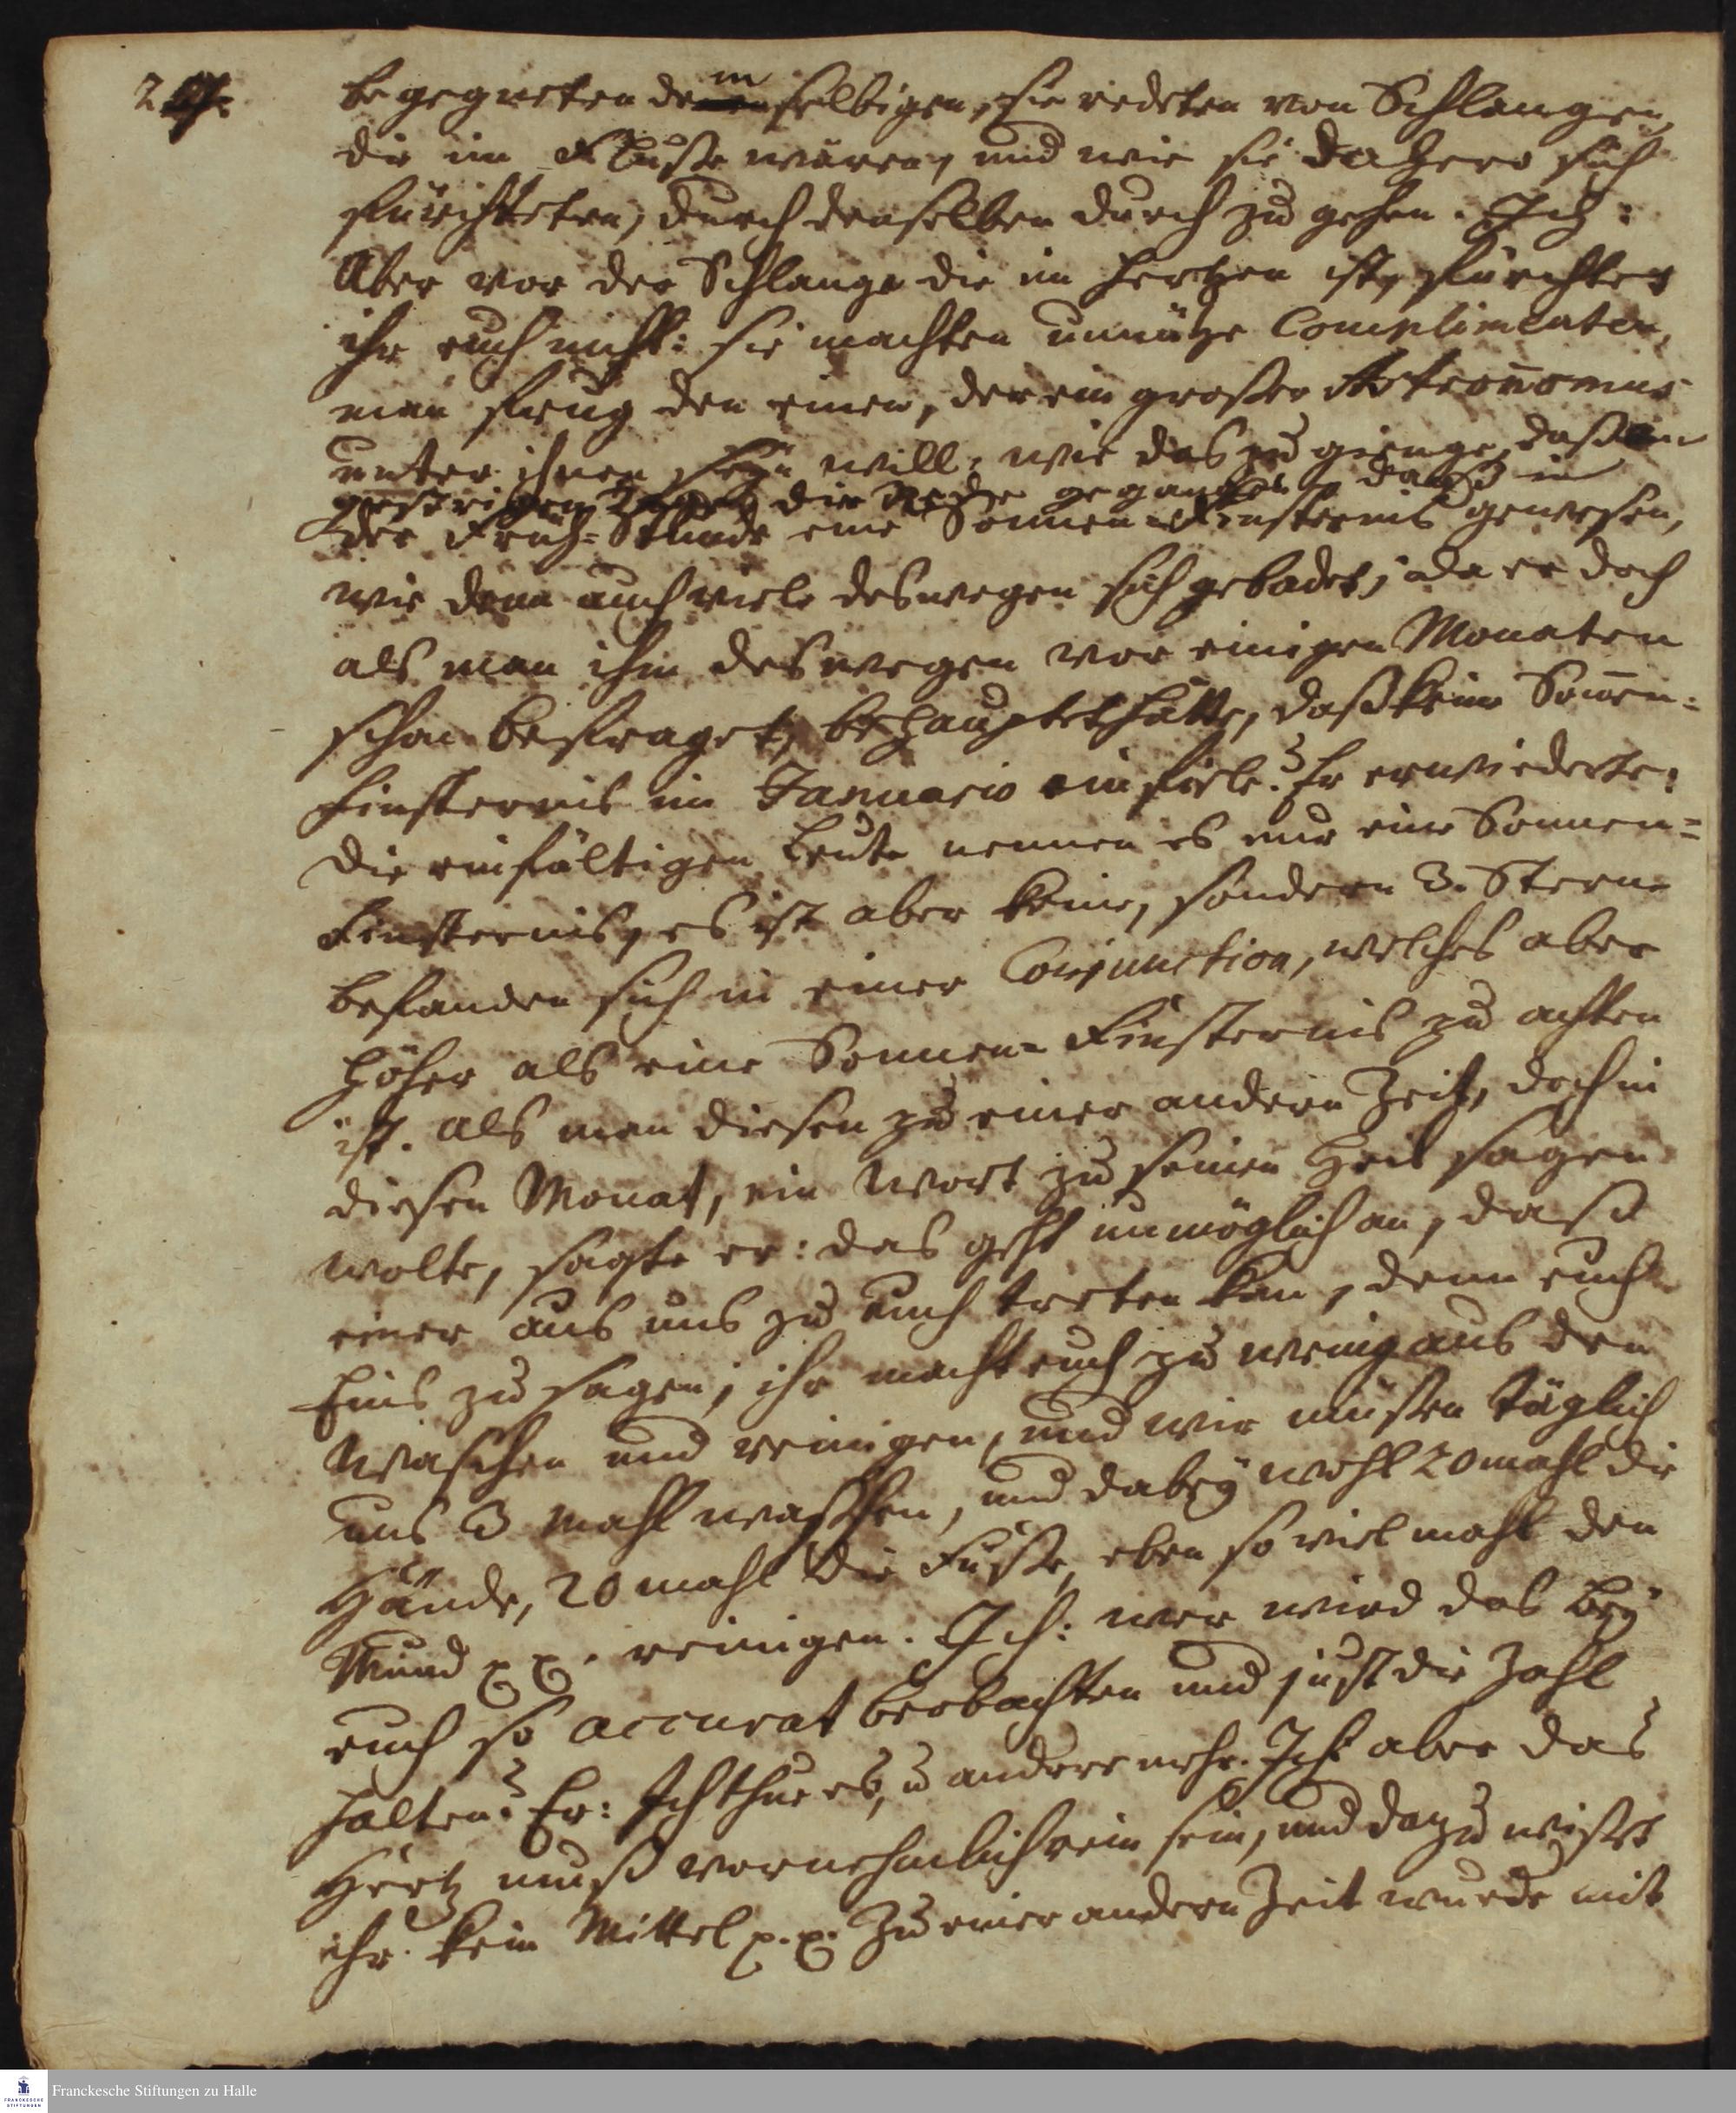 begegneten demselbigen, sie redeten von Schlangen,
die im Fluße wären, und wie sie dahero sich
fürchteten, durch denselben durch zu gehen. Ich:
Aber vor der Schlange die im Hertzen ist, fürchtet
ihr euch nicht: sie machten unnütze Complimenten,
man frug den einen, der ein großer Astronomus
unter ihnen seyn will, wie das zu gienge, daß am
gestrigen Tage die Rede gegangen, daß in
der Früh-Stunde eine Sonnen-Finsternis gewesen,
wie denn auch viele deswegen sich gebadet; da er doch
als man ihn deswegen vor einigen Monaten
schon befraget, behauptet hätte, daß keine Sonnen-
Finsternis im Januario einfiele? Er erwiederte:
Die einfältigen Leute nennen es nur eine Sonnen-
Finsternis, es ist aber keine, sondern 3. Sterne
befanden sich in einer Conjunction, welches aber
höher als eine Sonnen-Finsternis zu achten
ist. Als man diesen zu einer andern Zeit, doch in
diesen Monat, ein Wort zu seinen Heil sagen
wolte, sagte er: das geht unmöglich an, daß
einer aus uns zu euch treten kan, denn euch
Eins zu sagen, ihr macht euch zu wenig aus den
Waschen und reinigen, und wir müßen täglich
uns 3 mahl waschen, und dabey wohl 20 mahl die
Hände, 20 mahl die Füße, eben so viel mahl den
Mund pp. reinigen. Ich: wer wird das bey
euch so accurat beobachten und just die Zahl
halten? Er: Ich thue es, u andere mehr. Ich: aber das
Hertz muß vornehmlich rein sein, und dazu wißet
ihr kein Mittel p.p. Zu einer andern Zeit wurde mit
Franckesche Stiftungen zu Halle
FRANCKESCHE
STIFTUNGEN